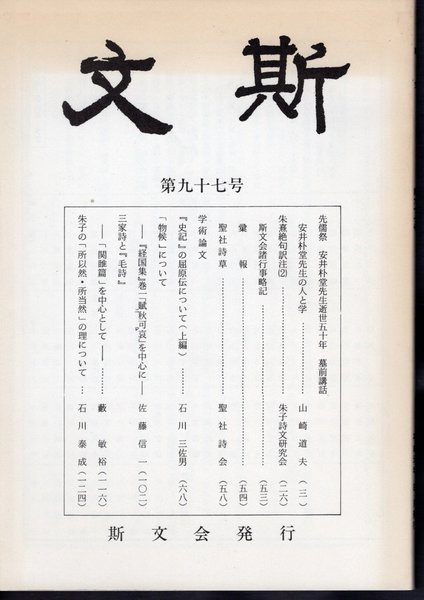 斯文
第九十七号
先儒祭 安井朴堂先生逝世五十年 墓前講話
安井朴堂先生の人と学…………山崎道夫（三）
朱熹絶句訳注(2)…………朱子詩文研究会（二六）
斯文会諸行事略記…………（五三）
彙報…………（五四）
聖社詩草…………聖社詩会（五八）
学術論文
『史記』の屈原伝について（上編）……石川三佐男（六八）
「物候」について
――『経国集』巻一「賦秋可哀」を中心に――佐藤信一（一〇二）
三家詩と『毛詩』
――「関雎篇」を中心として――……藪敏裕（一一六）
朱子の「所以然・所当然」の理について…石川泰成（一二四）
斯文会発行